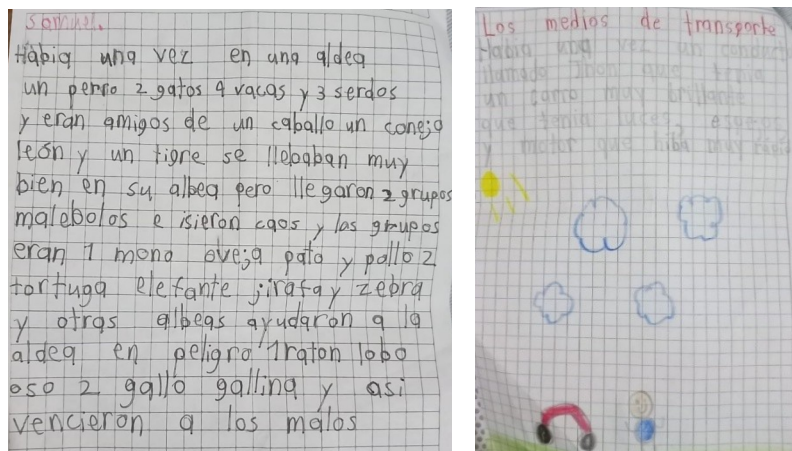 Samuel.
Habia una vez en una aldea
un perro 2 gatos 4 vacas y 3 serdos
y eran amigos de un caballo un conejo
león y un tigre se llebaban muy
bien en su albea pero llegaron 2 grupos
malebolos e isieron caos y las grupos
eran 1 mono oveja pato y pollo 2
tortuga elefante jirafa y zebra
y otras albeas ayudaron a la
aldea en peligro 1 raton lobo
oso 2 gallo gallina y asi
vencieron a los malos
Los medios de transporte
Habia una vez un conduct
llamado Jhon que tenia
un carro muy brillante
que tenia luces, espejo
y motor que hiba muy rapid